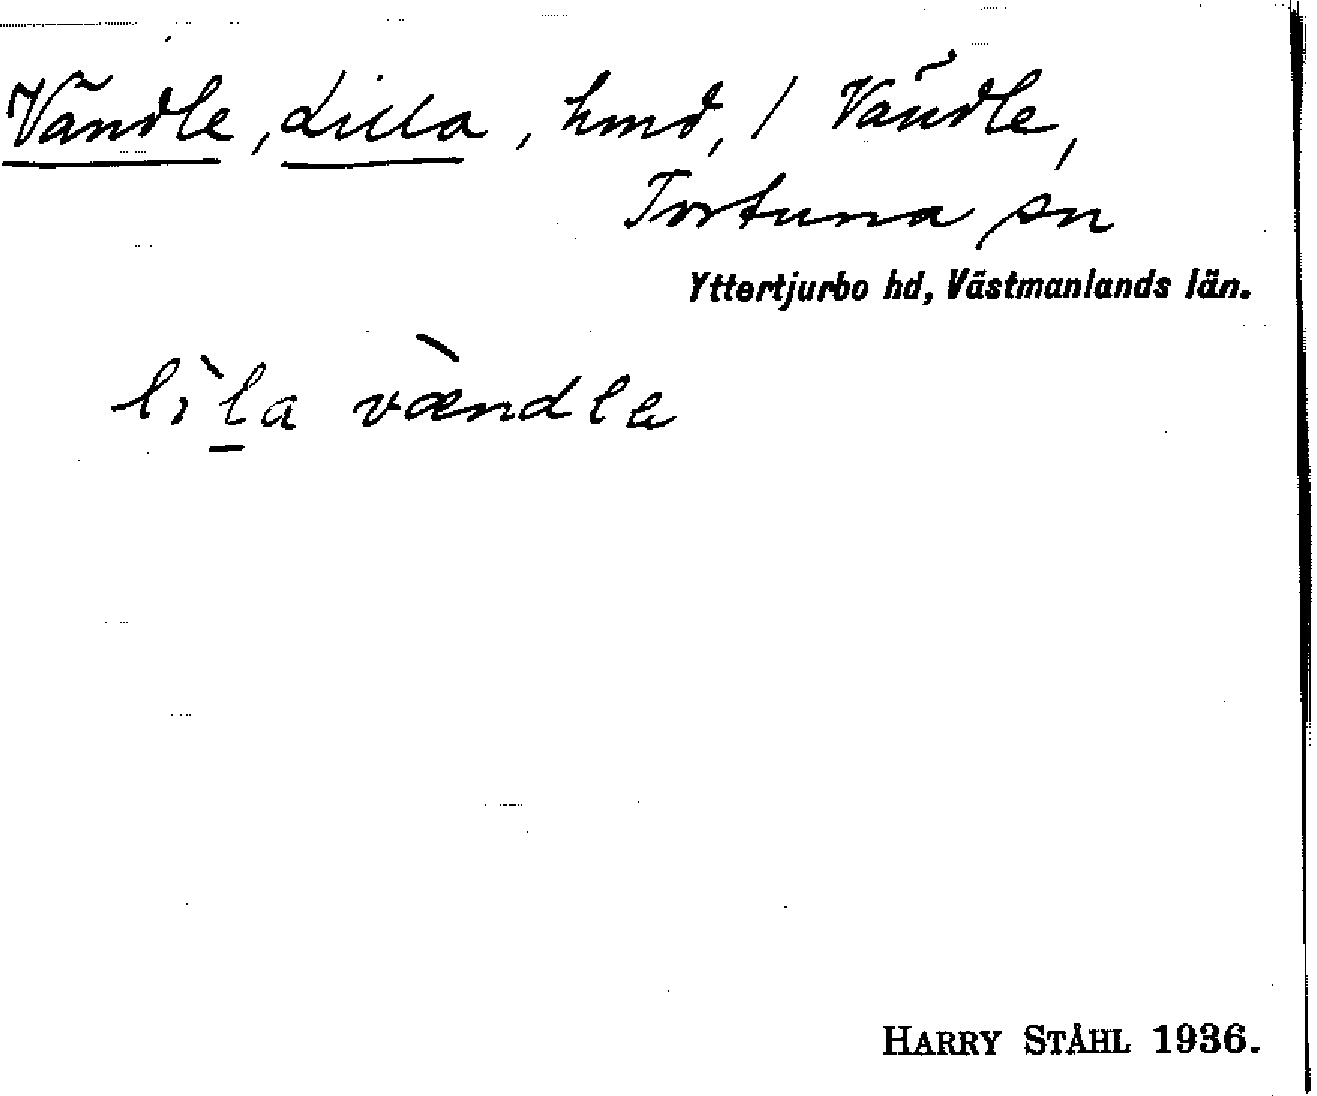 Vändle, Lilla, hmd, / Vändle,
Tortuna sn
Yttertjurbo hd, Västmanlands län.
lìl̲a væ̀ndle
HARRY STÅHL 1936.